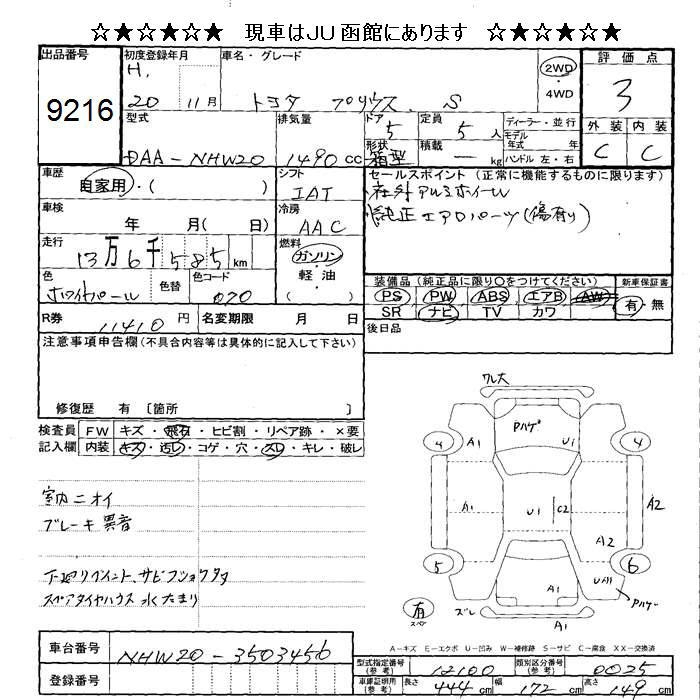 ☆★☆★☆★ 現車はJU函館にあります ☆★☆★☆★
出品番号 9216
初度登録年月 H. 20 11月
車名・グレード トヨタ プリウス S
2WD ・4WD
評価点 3
外装 内装
C C
型式 DAA-NHW20
排気量 1490 cc
ドア 5
形状 箱型
定員 5 人
積載 ー kg
ディーラー・並行
モデル年式 年
ハンドル 左・右
車歴 自家用・( )
シフト IAT
車検 年 月( 日)
冷房 AAC
走行 13万6千585 km
燃料 ガソリン・軽油 ( )
色 ホワイトパール
色替
色コード 070
セールスポイント (正常に機能するものに限ります)
社外アルミホイール
純正エアロパーツ(傷有り)
装備品 (純正品に限り○をつけてください)
PS PW ABS エアB AW
SR ナビ TV カワ
新車保証書
有・無
後日品
R券 11410 円
名変期限 月 日
注意事項申告欄(不具合内容等は具体的に記入して下さい)
修復歴 有 〔箇所 〕
検査員記入欄
FW キズ・飛石・ヒビ割・リペア跡・×要
内装 キズ・汚レ・コゲ・穴・スレ・キレ・破レ
室内ニオイ
ブレーキ異音
下廻リペイント、サビフショクタタ
スペアタイヤハウス水たまり
ワレ大
Pハゲ
4 A1 U1 4
A1 U1 C2 A2
A2
5 UA1 6
A1 Pハゲ
有 スペア ズレ
A1
A-キズ E-エクボ U-凹み W-補修跡 S-サビ C-腐食 XX-交換済
車台番号 NHW20-3503456
登録番号
型式指定番号(参考) 12100
類別区分番号(参考) 0025
車庫証明用(参考) 長さ 444 cm 幅 172 cm 高さ 149 cm